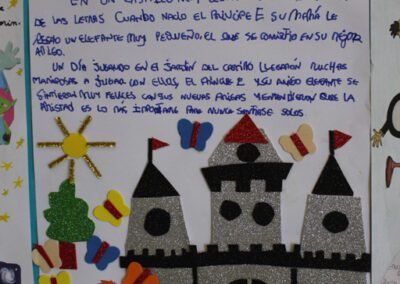 EN UN CASTILLO MUY
DE LAS LETRAS CUANDO NACIO EL PRINCIPE E SU MAMÁ LE
REGALO UN ELEFANTE MUY PEQUEÑO, EL QUE SE CONVIRTIO EN SU MEJOR
AMIGO.
UN DÍA JUGANDO EN EL JARDÍN DEL CASTILLO LLEGARÓN MUCHAS
MARIPOSAS A JUGAR CON ELLOS, EL PRINCIPE Y SU AMIGO ELEFANTE SE
SINTIERON MUY FELICES CON SUS NUEVAS AMIGAS Y ENTENDIERON QUE LA
AMISTAD ES LO MAS IMPORTANTE PARA NUNCA SENTIRSE SOLOS